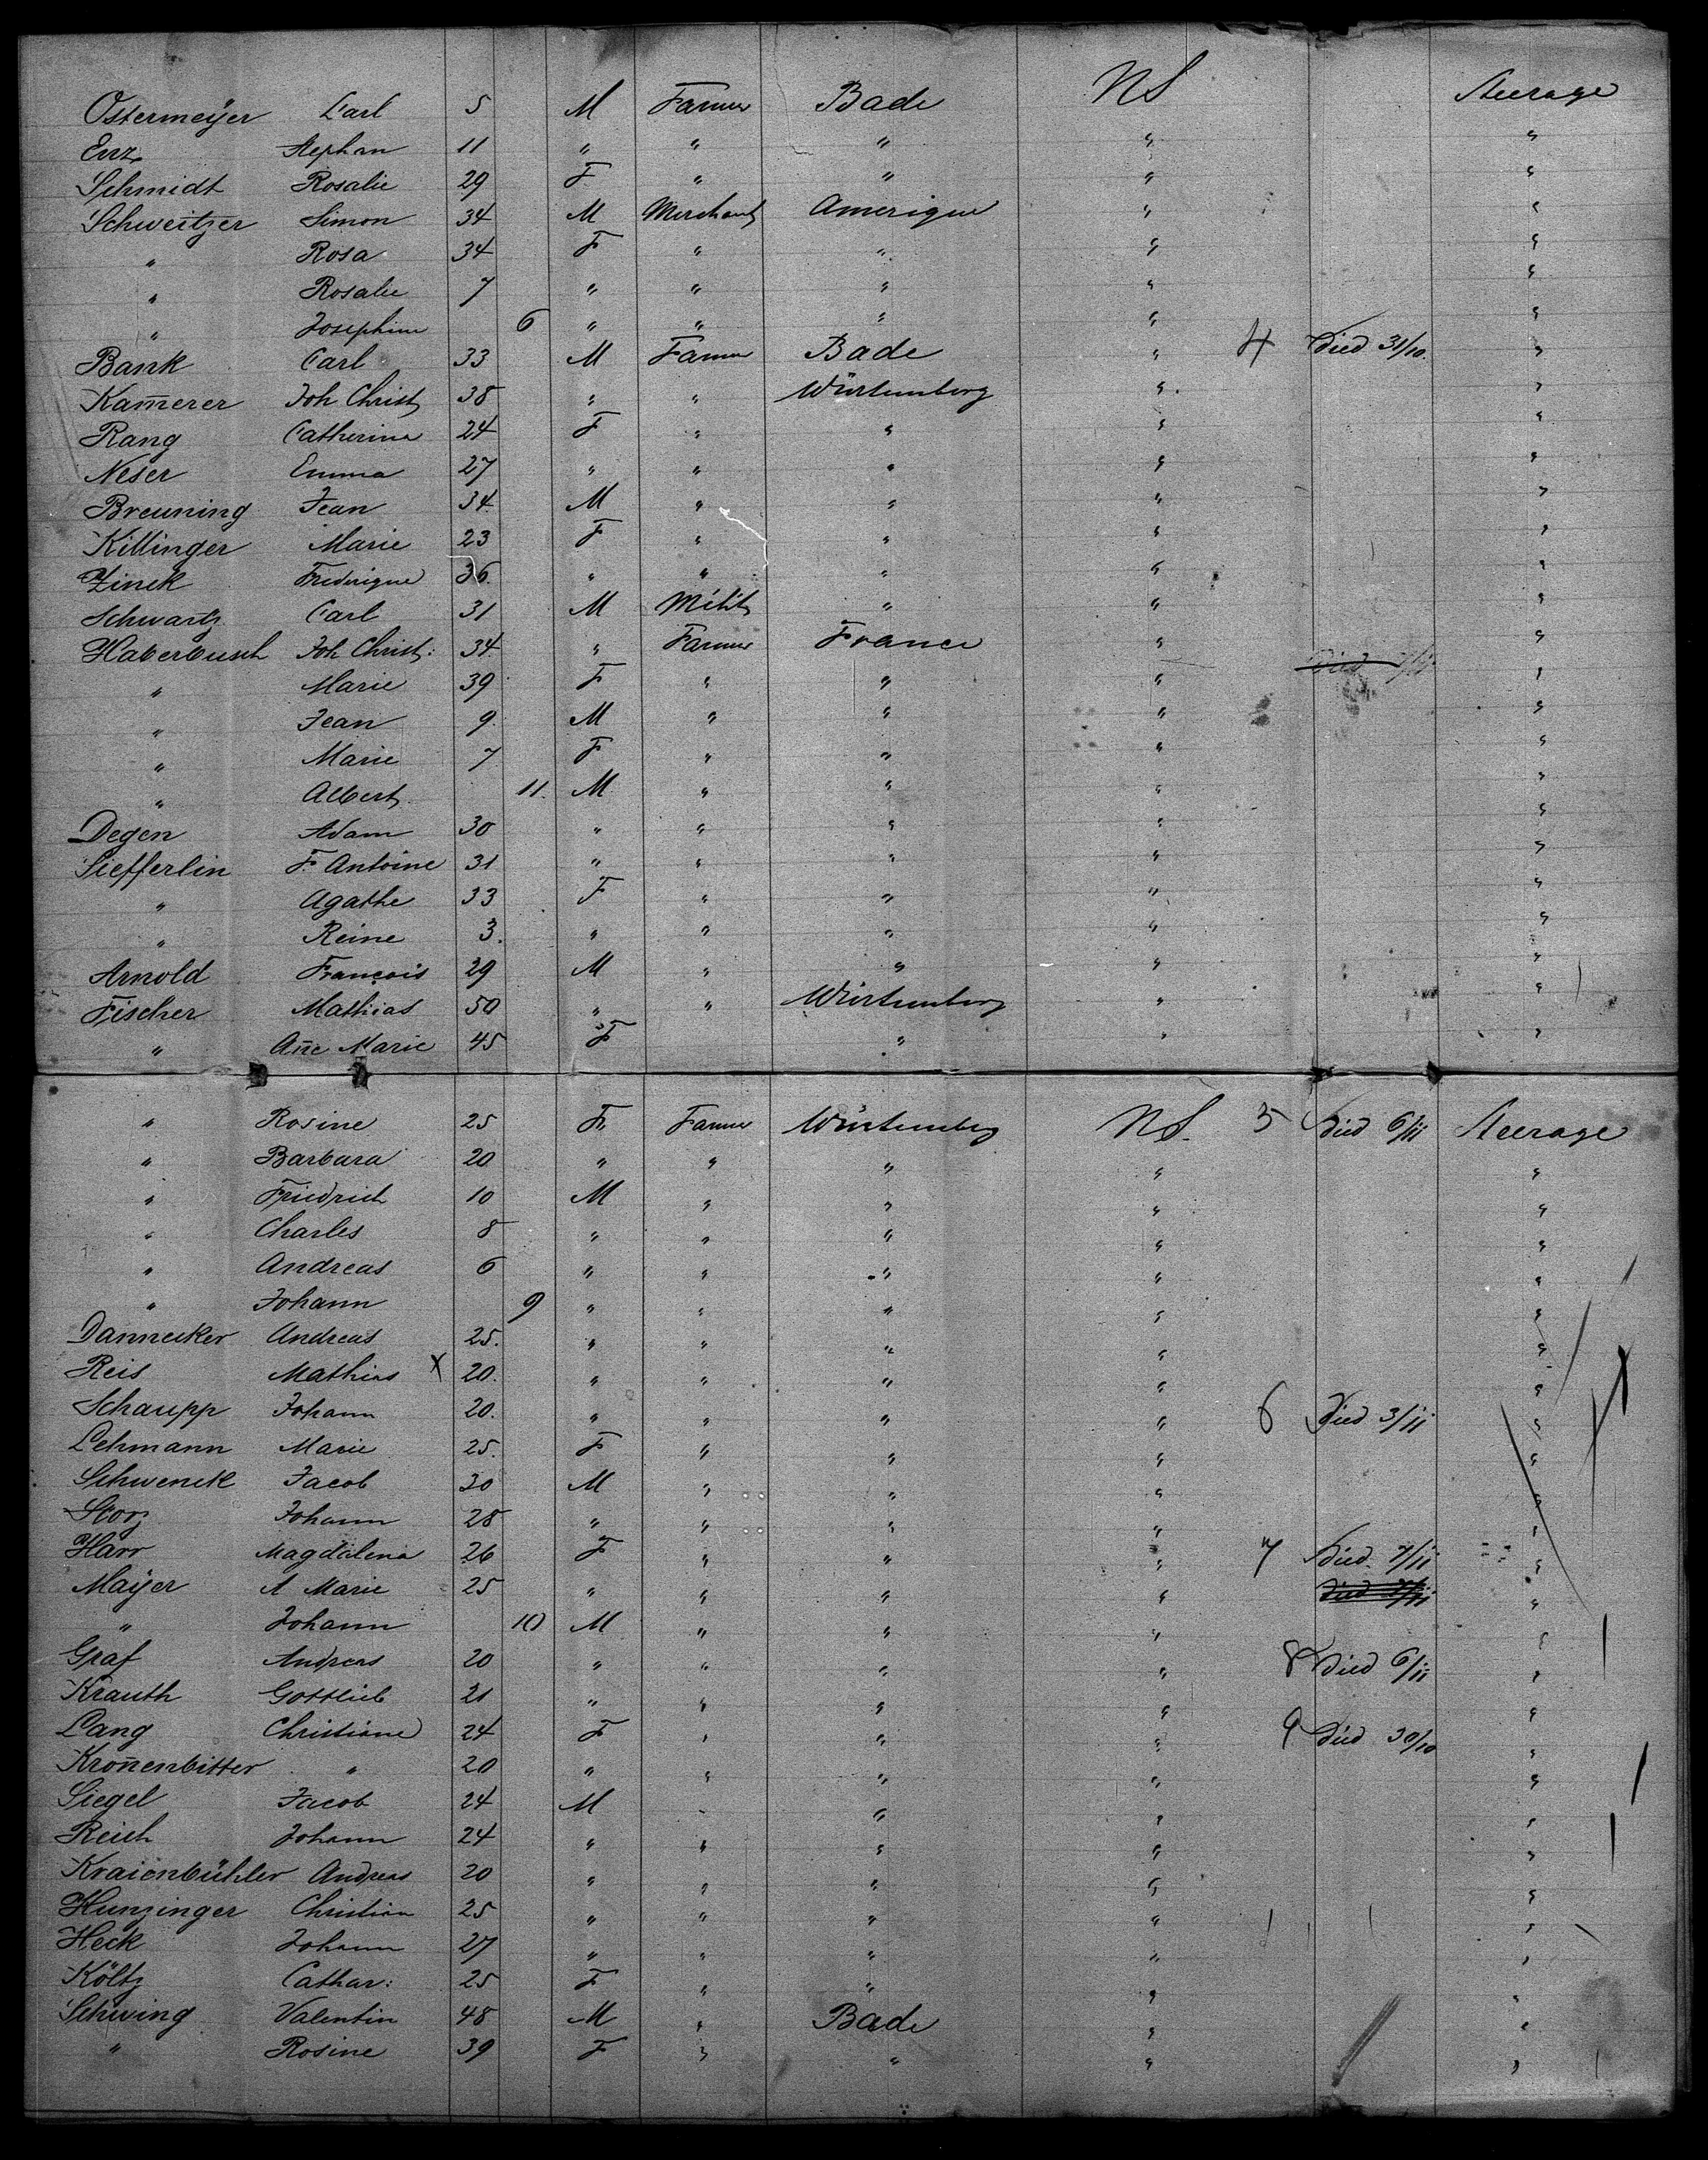 Ostermeÿer Carl 5 M Farmer Bade NS Average
Enz Stephan 11 " " " " "
Schmidt Rosalie 29 F " " " "
Schweitzer Simon 34 M Merchant Amerique " "
" Rosa 34 F " " " "
" Rosalie 7 " " " " "
" Josephine 6 " " " " "
Bank Carl 33 M Farmer Bade " 4 Died 31/10. "
Kam̄erer Joh Christ 38 " " Würtemberg " "
Rang Catherina 24 F " " " "
Neser Emma 27 " " " " "
Breuning Jean 34 M " " " "
Killinger Marie 23 F " " " "
Zinck Frederique 36 " " " " "
Schwartz Carl 31 M Milit " " "
Haberbusch Joh Christ: 34 " Farmer France " "
" Marie 39 F " " " Died 7/11 "
" Jean 9 M " " " "
" Marie 7 F " " " "
" Albert 11 M " " " "
Degen Adam 30 " " " " "
Siefferlin F. Antoine 31 " " " " "
" Agathe 33 F " " " "
" Reine 3. " " " " "
Arnold François 29 M " " " "
Fischer Mathias 50 " " Würtemberg " "
" An̄e Marie 45 F " " "
" Rosine 25 F. Farmer Würtemberg NS. 5 Died 6/11 Average
" Barbara 20 " " " " "
" Friedrich 10 M " " " "
" Charles 8 " " " " "
" Andreas 6 " " " " "
" Johann 9 " " " " "
Dannecker Andreas 25. " " " " "
Reis Mathias X 20. " " " " "
Schaupp Johann 20. " " " " 6 Died 3/11 "
Lehmann Marie 25. F " " " "
Schwenck Jacob 30 M " " " "
Storz Johann 28 " " " " "
Harr Magdalena 26 F " " " 7 Died 7/11 "
Maÿer A Marie 25 " " " " Died 7/11 "
" Johann 10 M " " " "
Graf Andreas 20 " " " " 8 Died 6/11 "
Krauth Gottlieb 21 " " " " "
Lang Christiane 24 F " " " 9 Died 30/10 "
Kron̄enbitter " 20 " " " " "
Siegel Jacob 24 M " " " "
Reich Johann 24 " " " " "
Kraienbühler Andreas 20 " " " " "
Hunzinger Christian 25 " " " " "
Heck Johann 27 " " " " "
Költz Cathar: 25 F " " " "
Schwing Valentin 48 M " Bade " "
" Rosine 39 F " " " "